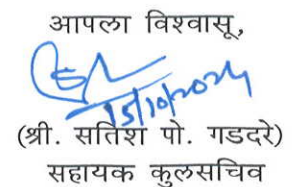 आपला विश्वासू,
15/10/2024
(श्री. सतिश पो. गडदरे)
सहायक कुलसचिव